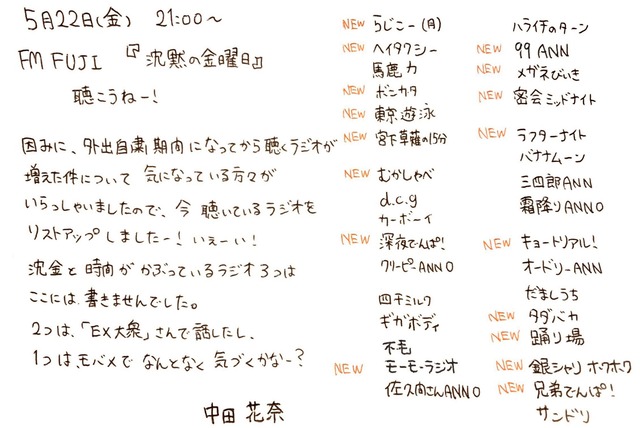 5月22日(金) 21:00〜
FM FUJI 『沈黙の金曜日』
聴こうねー!
因みに、外出自粛期間になってから聴くラジオが
増えた件について 気になっている方々が
いらっしゃいましたので、今 聴いているラジオを
リストアップしましたー!いぇーい!
沈金と時間がかぶっているラジオ3つは
ここには書きませんでした。
2つは、「EX大衆」さんで話したし、
1つは、モバメでなんとなく気づくかなー?
中田 花奈
NEW らじこー(月)
NEW ヘイタクシー
馬鹿力
NEW ボンカタ
NEW 東京遊泳
NEW 宮下草薙の15分
NEW むかしゃべ
d.c.g
カーボーイ
NEW 深夜でんぱ!
クリーピーANN0
四千ミルク
ギガボディ
不毛
NEW モーモーラジオ
佐久間さんANN0
ハライチのターン
NEW 99 ANN
NEW メガネびいき
NEW 密会ミッドナイト
NEW ラフターナイト
バナナムーン
三四郎ANN
霜降りANN0
NEW キョートリアル!
オードリーANN
だましうち
NEW タダバカ
NEW 踊り場
NEW 銀シャリ ホワホワ
NEW 兄弟でんぱ!
サンドリ